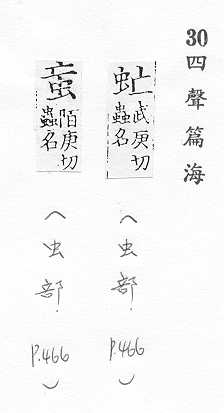 30四聲篇海
虻武庚切蟲名（虫部. P.466）
䖟陌庚切蟲名（虫部. P.466）